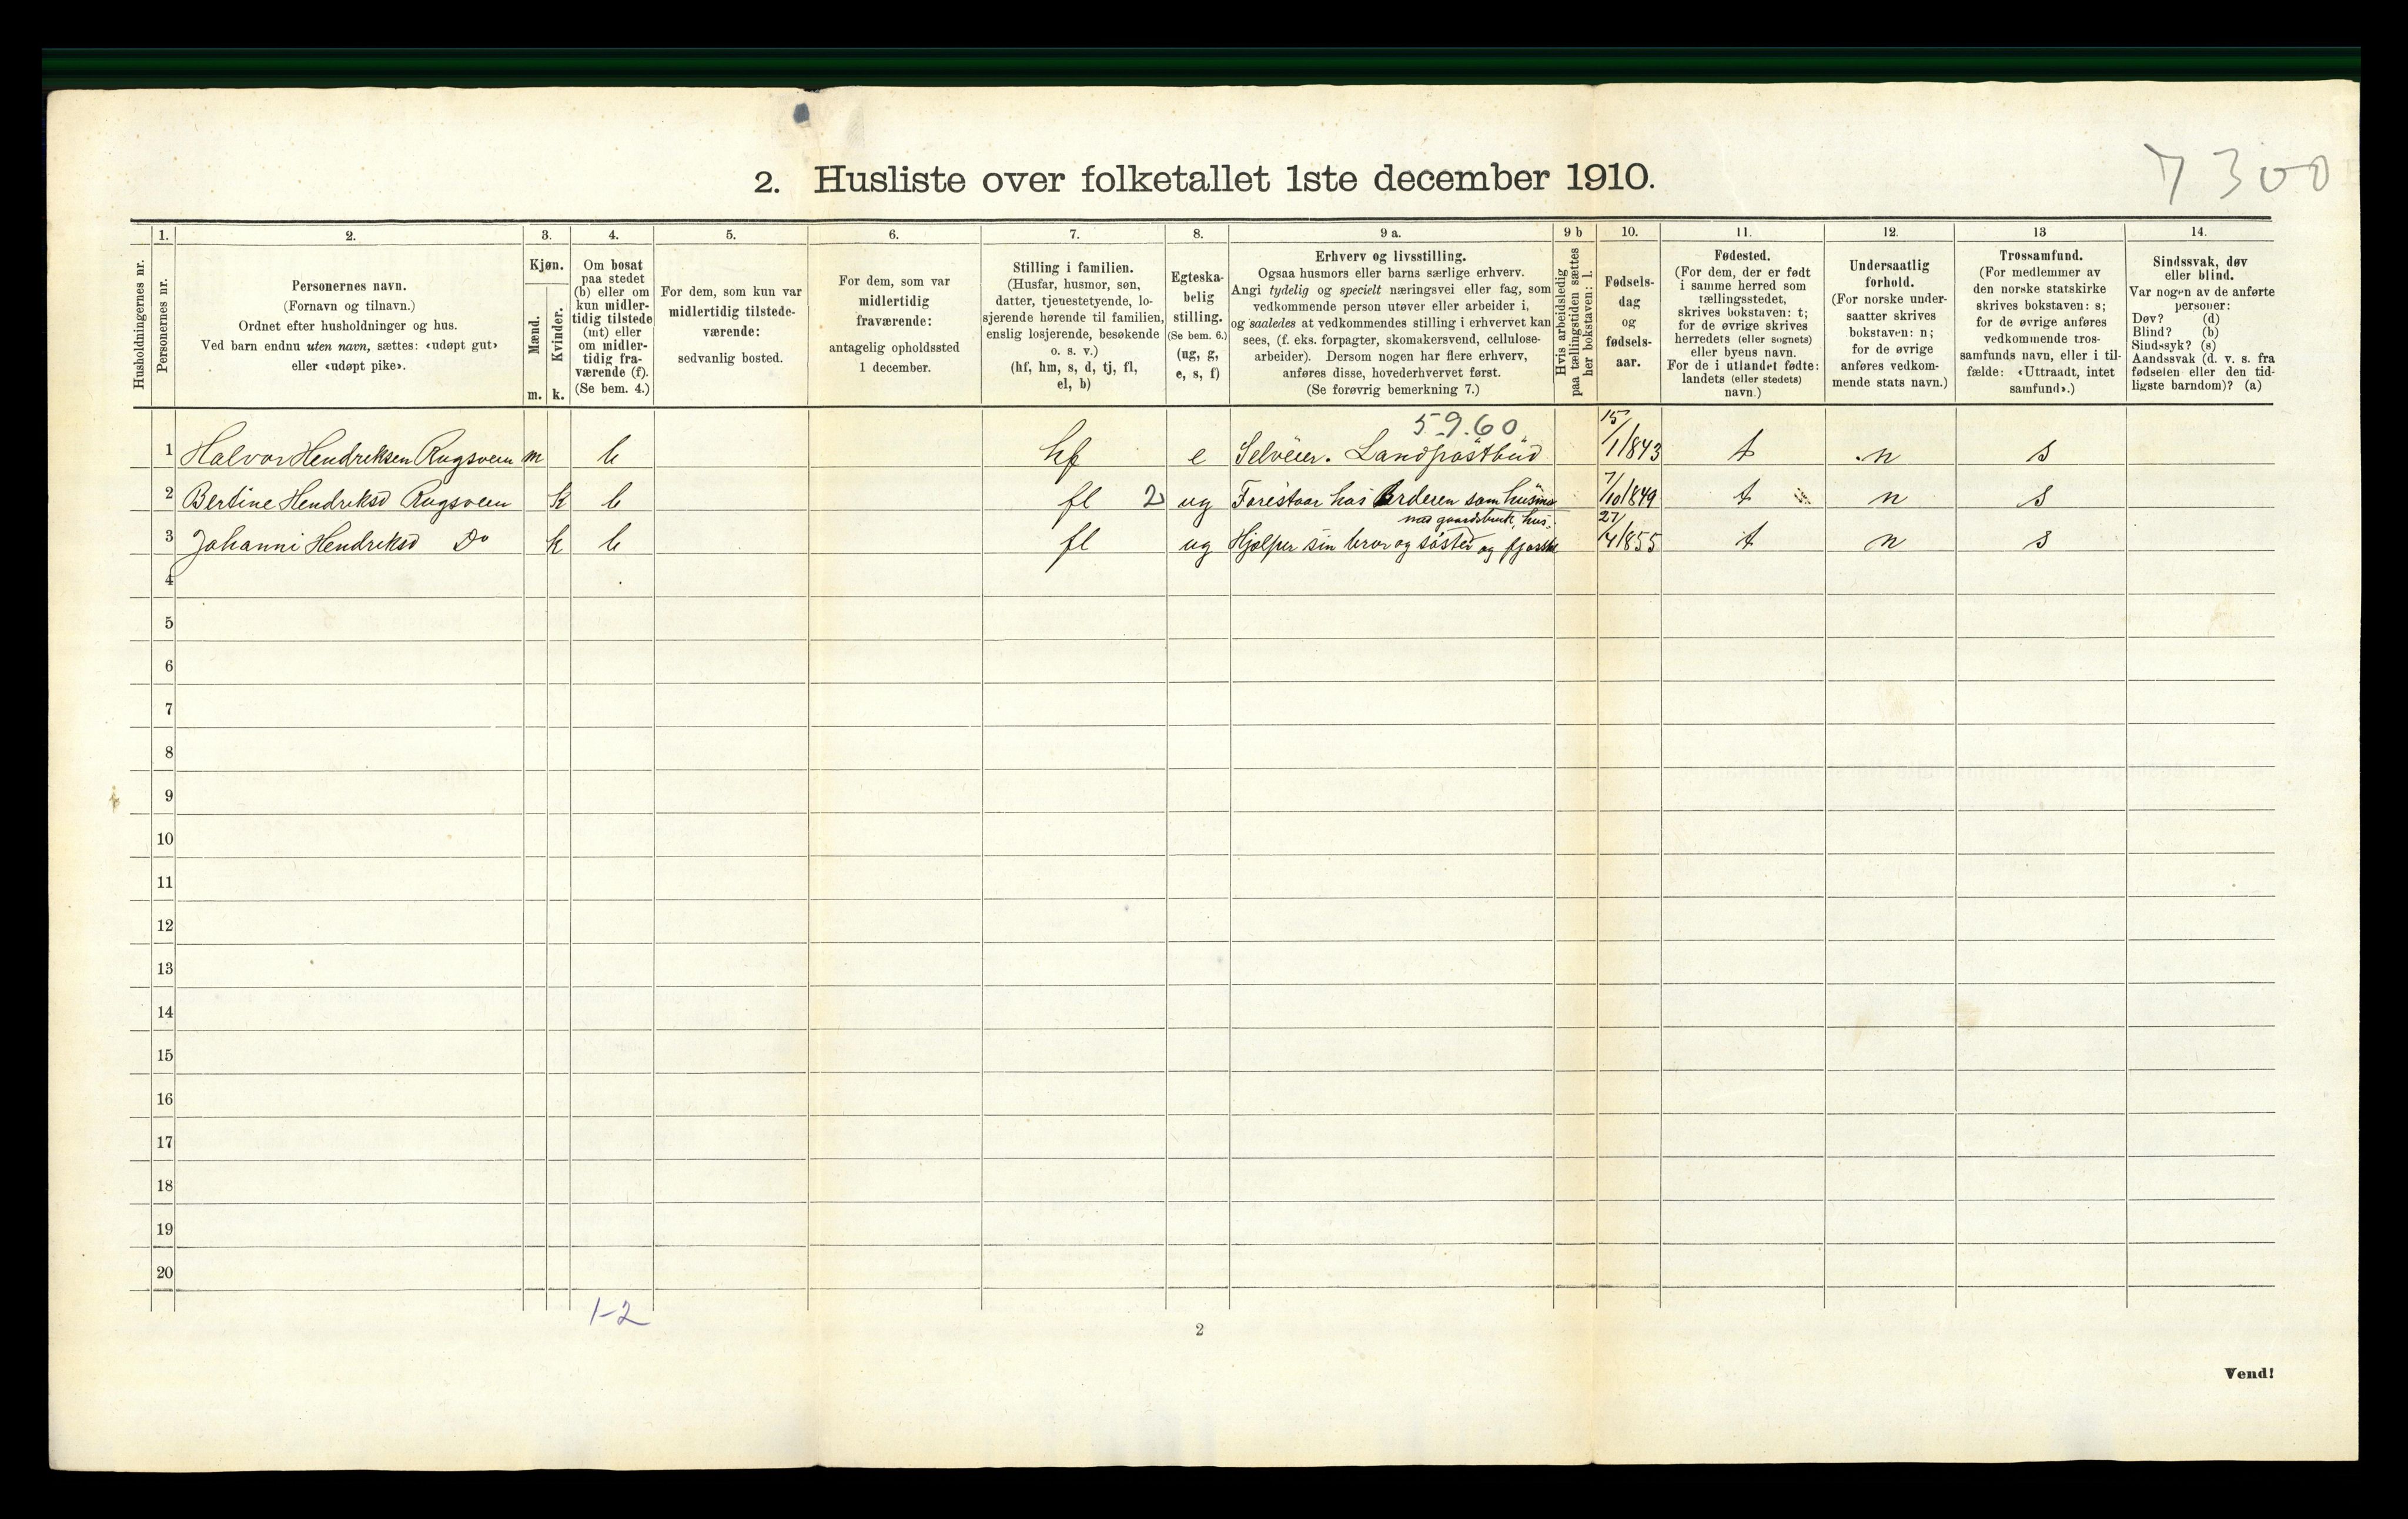 7300
2. Husliste over folketallet 1ste december 1910.
Husholdningernes nr.
1.
Personernes nr.
2.
Personernes navn.
(Fornavn og tilnavn.)
Ordnet efter husholdninger og hus.
Ved barn endnu uten navn, sættes: «udøpt gut»
eller «udøpt pike».
3.
Kjøn.
Mænd.
Kvinder.
m.
k.
4.
Om bosat
paa stedet
(b) eller om
kun midler-
tidig tilstede
(mt) eller
om midler-
tidig fra-
værende (f).
(Se bem. 4.)
5.
For dem, som kun var
midlertidig tilstede-
værende:
sedvanlig bosted.
6.
For dem, som var
midlertidig
fraværende:
antagelig opholdssted
1 december.
7.
Stilling i familien.
(Husfar, husmor, søn,
datter, tjenestetyende, lo-
sjerende hørende til familien,
enslig losjerende, besøkende
o. s. v.)
(hf, hm, s, d, tj, fl,
el, b)
8.
Egteska-
belig
stilling.
(Se bem. 6.)
(ug, g,
e, s, f)
9 a.
Erhverv og livsstilling.
Ogsaa husmors eller barns særlige erhverv.
Angi tydelig og specielt næringsvei eller fag, som
vedkommende person utøver eller arbeider i,
og saaledes at vedkommendes stilling i erhvervet kan
sees, (f. eks. forpagter, skomakersvend, cellulose-
arbeider). Dersom nogen har flere erhverv,
anføres disse, hovederhvervet først.
(Se forøvrig bemerkning 7.)
9 b
Hvis arbeidsledig
paa tællingstiden sættes
her bokstaven: l.
10.
Fødsels-
dag
og
fødsels-
aar.
11.
Fødested.
(For dem, der er født
i samme herred som
tællingsstedet,
skrives bokstaven: t;
for de øvrige skrives
herredets (eller sognets)
eller byens navn.
For de i utlandet fødte:
landets (eller stedets)
navn.)
12.
Undersaatlig
forhold.
(For norske under-
saatter skrives
bokstaven: n;
for de øvrige
anføres vedkom-
mende stats navn.)
13
Trossamfund.
(For medlemmer av
den norske statskirke
skrives bokstaven: s;
for de øvrige anføres
vedkommende tros-
samfunds navn, eller i til-
fælde: «Uttraadt, intet
samfund».)
14.
Sindssvak, døv
eller blind.
Var nogen av de anførte
personer:
Døv? (d)
Blind? (b)
Sindssyk? (s)
Aandssvak (d. v. s. fra
fødselen eller den tid-
ligste barndom)? (a)
5.9.60
1 Halvor Hendriksen Rugsveen m b hf e Selveier. Landpostbud 15/1 1843 t n s
2 Bertine Hendriksd Rugsveen k b fl 2 ug Forestaar hos Broderen som husmor 7/10 1849 t n s
med gaardsbruk, hus
3 Johanni Hendriksd Do k b fl ug Hjælper sin bror og søster og fjøsstel 27/4 1855 t n s
4
5
6
7
8
9
10
11
12
13
14
15
16
17
18
19
20
1-2
2
Vend!